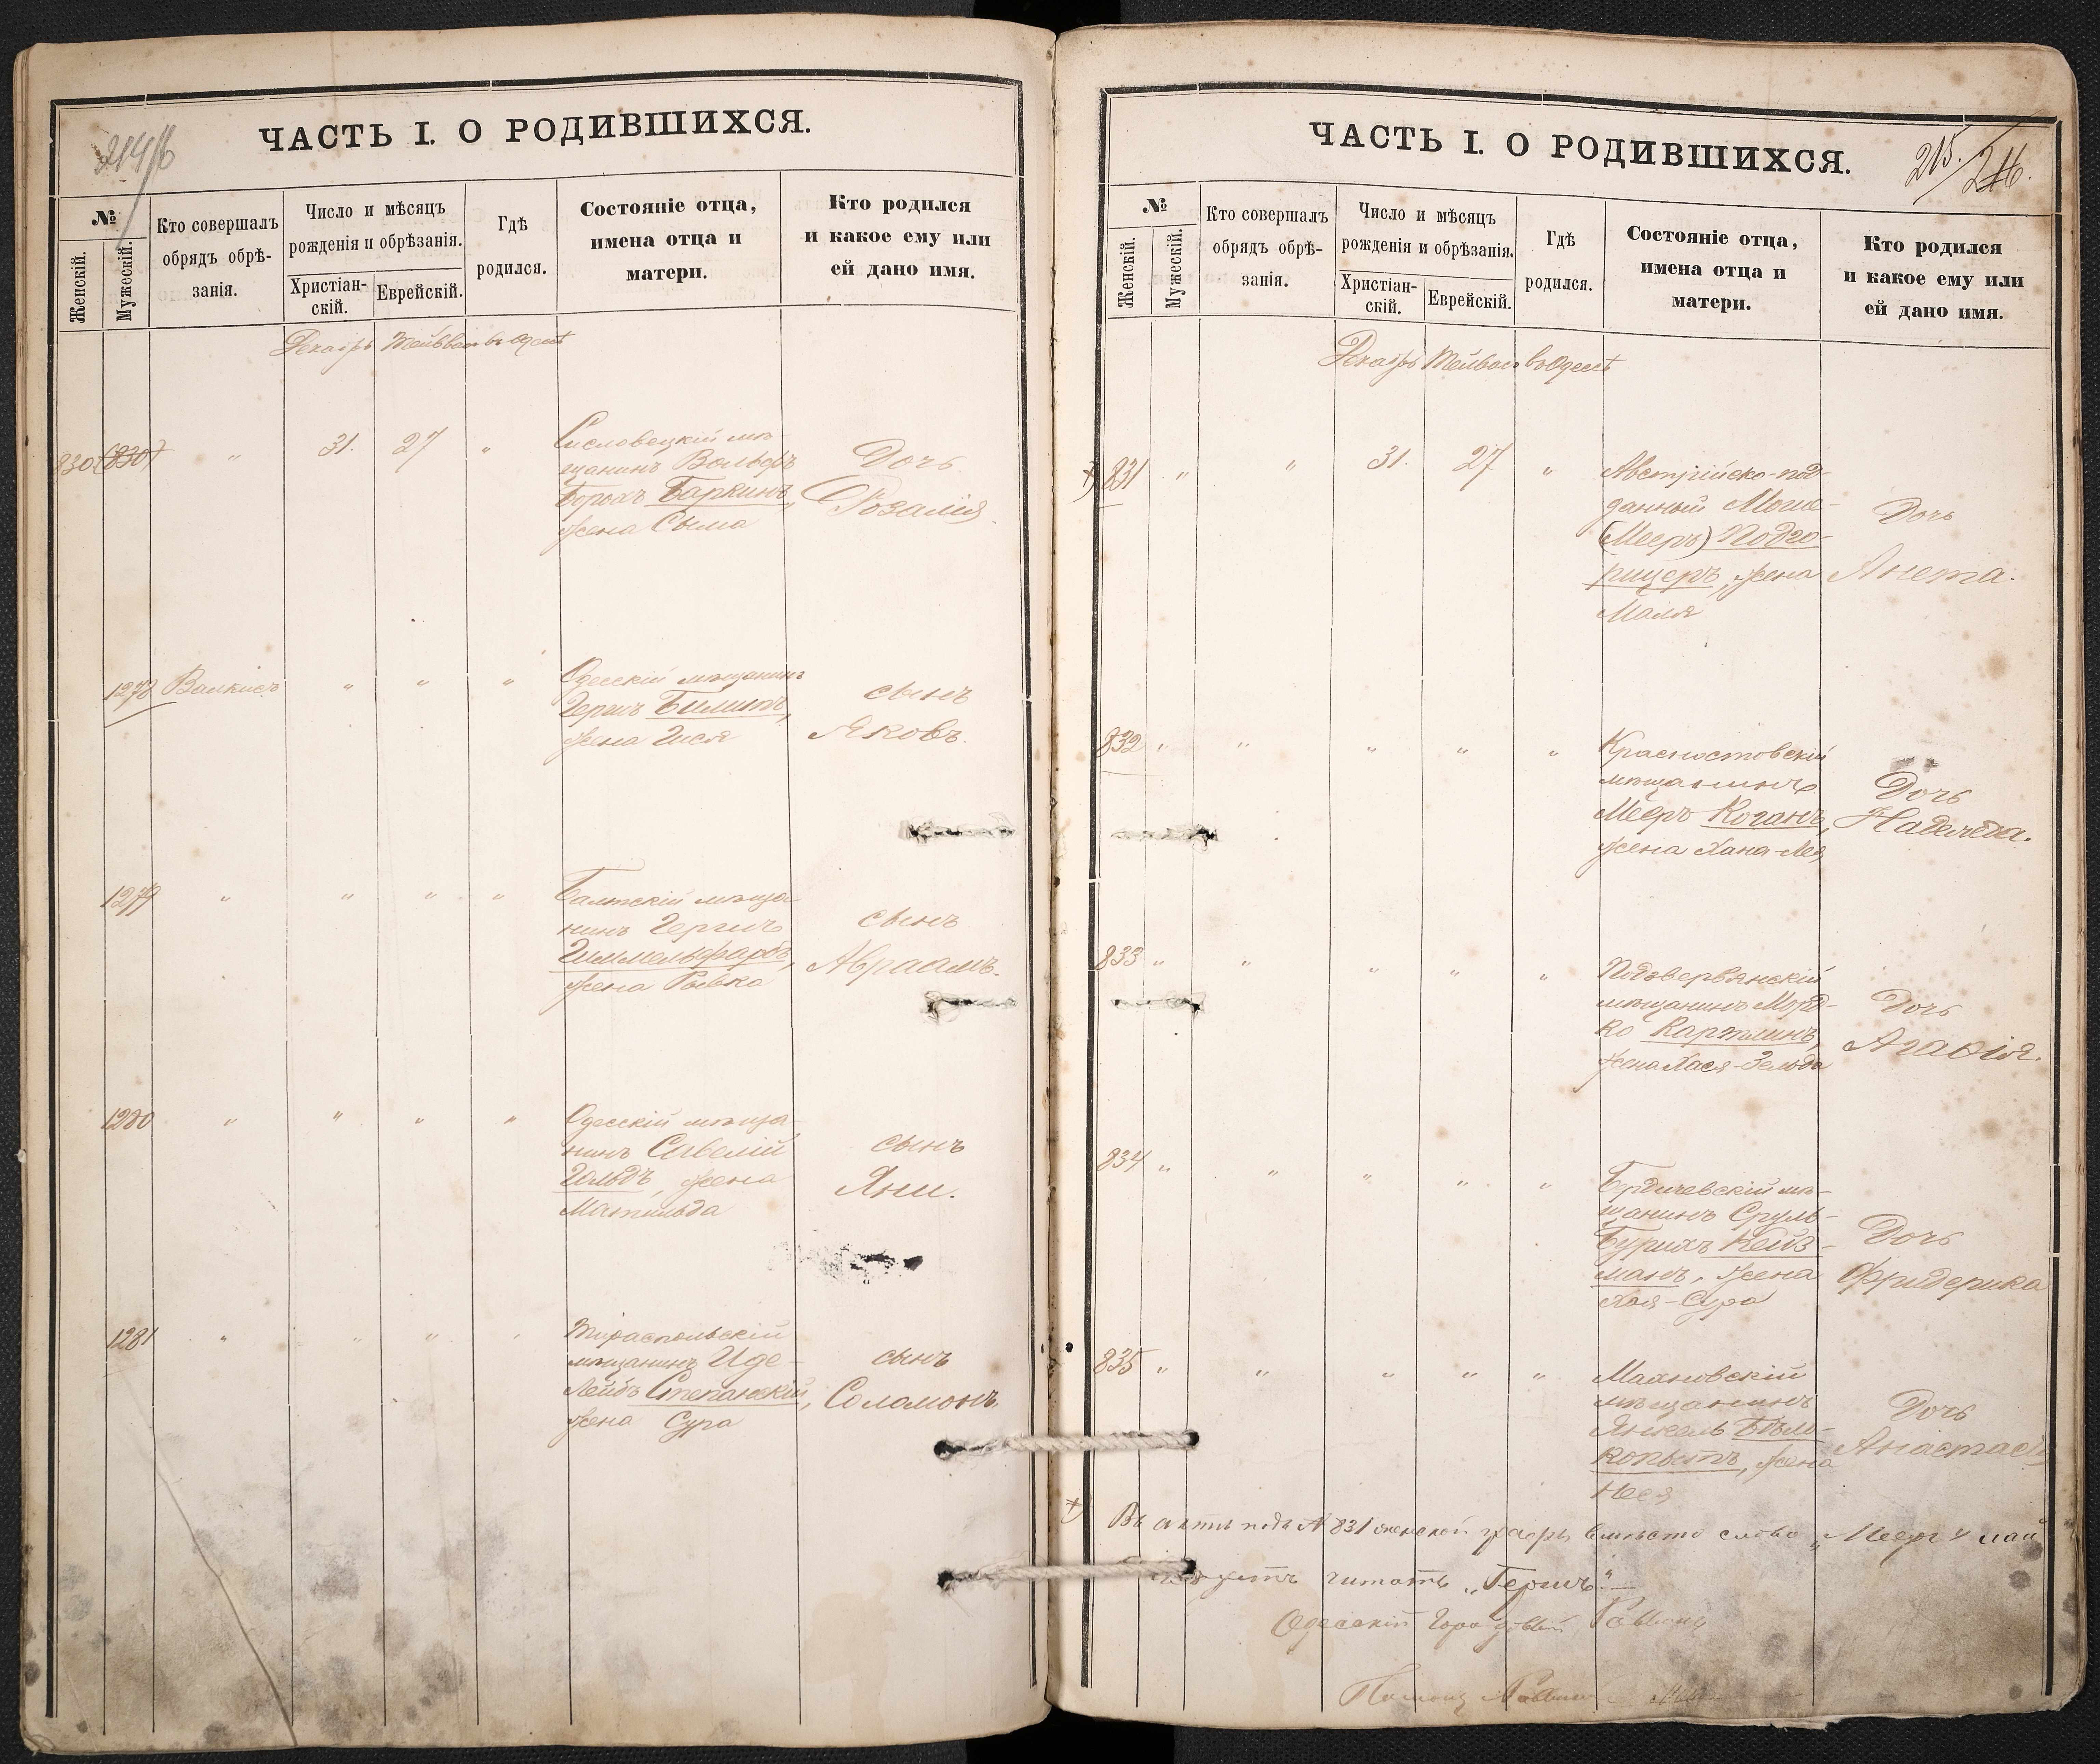 214/б
ЧАСТЬ I. О РОДИВШИХСЯ.
№
Женскій.
Мужескій.
Кто совершалъ
обрядъ обрѣ-
занія.
Число и мѣсяцъ
рожденія и обрѣзанія.
Христіан-
скій.
Еврейскій.
Гдѣ
родился.
Состояніе отца,
имена отца и
матери.
Кто родился
и какое ему или
ей дано имя.
Декабрь въ Одессѣ
830 (830) " 31. 27 "
мѣ-
щанинъ Вольфъ
Борохъ Баркинъ,
жена Сыма
Дочь
Розалія.
1278 " " "
Одесскій мѣщанинъ
Гершъ
жена
сынъ
Яковъ.
1279 " " " "
Балтскій мѣща-
нинъ Гершъ
Гиммельфарбъ,
жена Рывка
сынъ
Абраамъ.
1280 " " " "
Одесскій мѣща-
нинъ Савелій
Гольдъ, жена
Матильда
сынъ
Яни.
1281 " " " "
Тираспольскій
мѣщанинъ Иде-
Лейбъ Степанскій,
жена Сура
сынъ
Соломонъ.
215. / 216.
ЧАСТЬ I. О РОДИВШИХСЯ.
№
Женскій.
Мужескій.
Кто совершалъ
обрядъ обрѣ-
занія.
Число и мѣсяцъ
рожденія и обрѣзанія.
Христіан-
скій.
Еврейскій.
Гдѣ
родился.
Состояніе отца,
имена отца и
матери.
Кто родился
и какое ему или
ей дано имя.
Декабрь въ Одессѣ
+) 831 " " 31. 27 "
Австрійско-под-
данный Моше-
(Мееръ) Подго-
рицеръ, жена
Маля
Дочь
Анета.
832 " " " " "
Красностовскій
мѣщанинъ
Мееръ Коганъ,
жена Хана-Лея
Дочь
Надежда.
833 " " " " "
мѣщанинъ Морд-
ко Картлинъ,
жена Хася-Зельда
Дочь
Агафія.
834 " " " " "
Бердичевскій мѣ-
щанинъ Сруль-
Бурихъ Кейз-
манъ, жена
Хая-Сура
Дочь
Фридерика
835 " " " " "
Махновскій
мѣщанинъ
Янкель Бѣло-
копытъ, жена
Неся
Дочь
Анастасія
+) Въ актѣ подъ № 831 женской графы вмѣсто слова „Мееръ"
читать „Гершъ". —
Одесскій Городовой Раввинъ